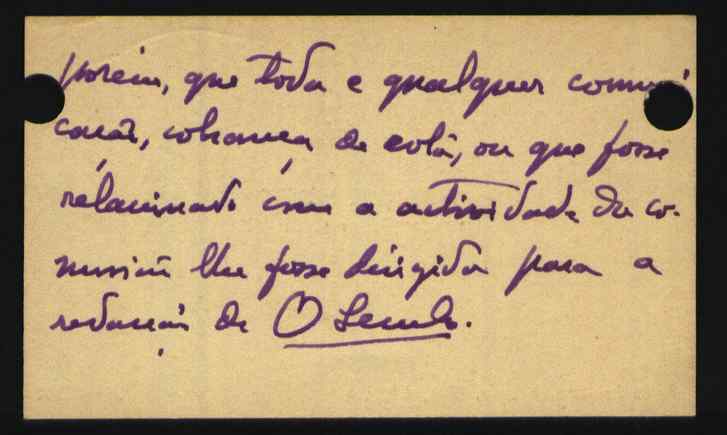 porém, que toda e qualquer comuni
cação, cobrança de cota, ou que fosse
relacionado com a actividade da co-
missão lhe fosse dirigida para a
redacção de O Seculo.